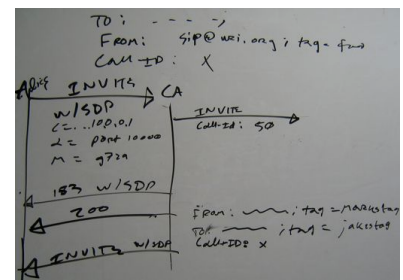 TO: - - - -;
FROM: sip@wri.org; tag=
CALL-ID: X
INVITE CA
w/SDP
c=...100.0.1
port 10000
m= g729
INVITE
Call-Id: 50
183 w/SDP
200
From: ; tag=markustag
To: ; tag=jakestag
Call-ID: x
INVITE w/SDP